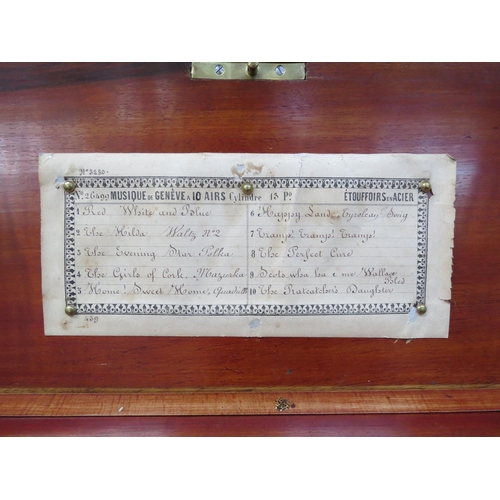 Nº 3230.
Nº 26499 MUSIQUE DE GENÈVE À 10 AIRS Cylindre 13 Pº ÉTOUFFOIRS EN ACIER
1 Red White and Blue
2 The Hilda Waltz Nº2
3 The Evening Star Polka
4 The Girls of Cork. Mazurka
5 Home! Sweet Home, Quadrille
6 Happy Land, Tyrolean Song
7 Tramp! Tramp! Tramp!
8 The Perfect Cure
9 Scots wha ha e me Wallace Bled
10 The Ratcatcher's Daughter
439